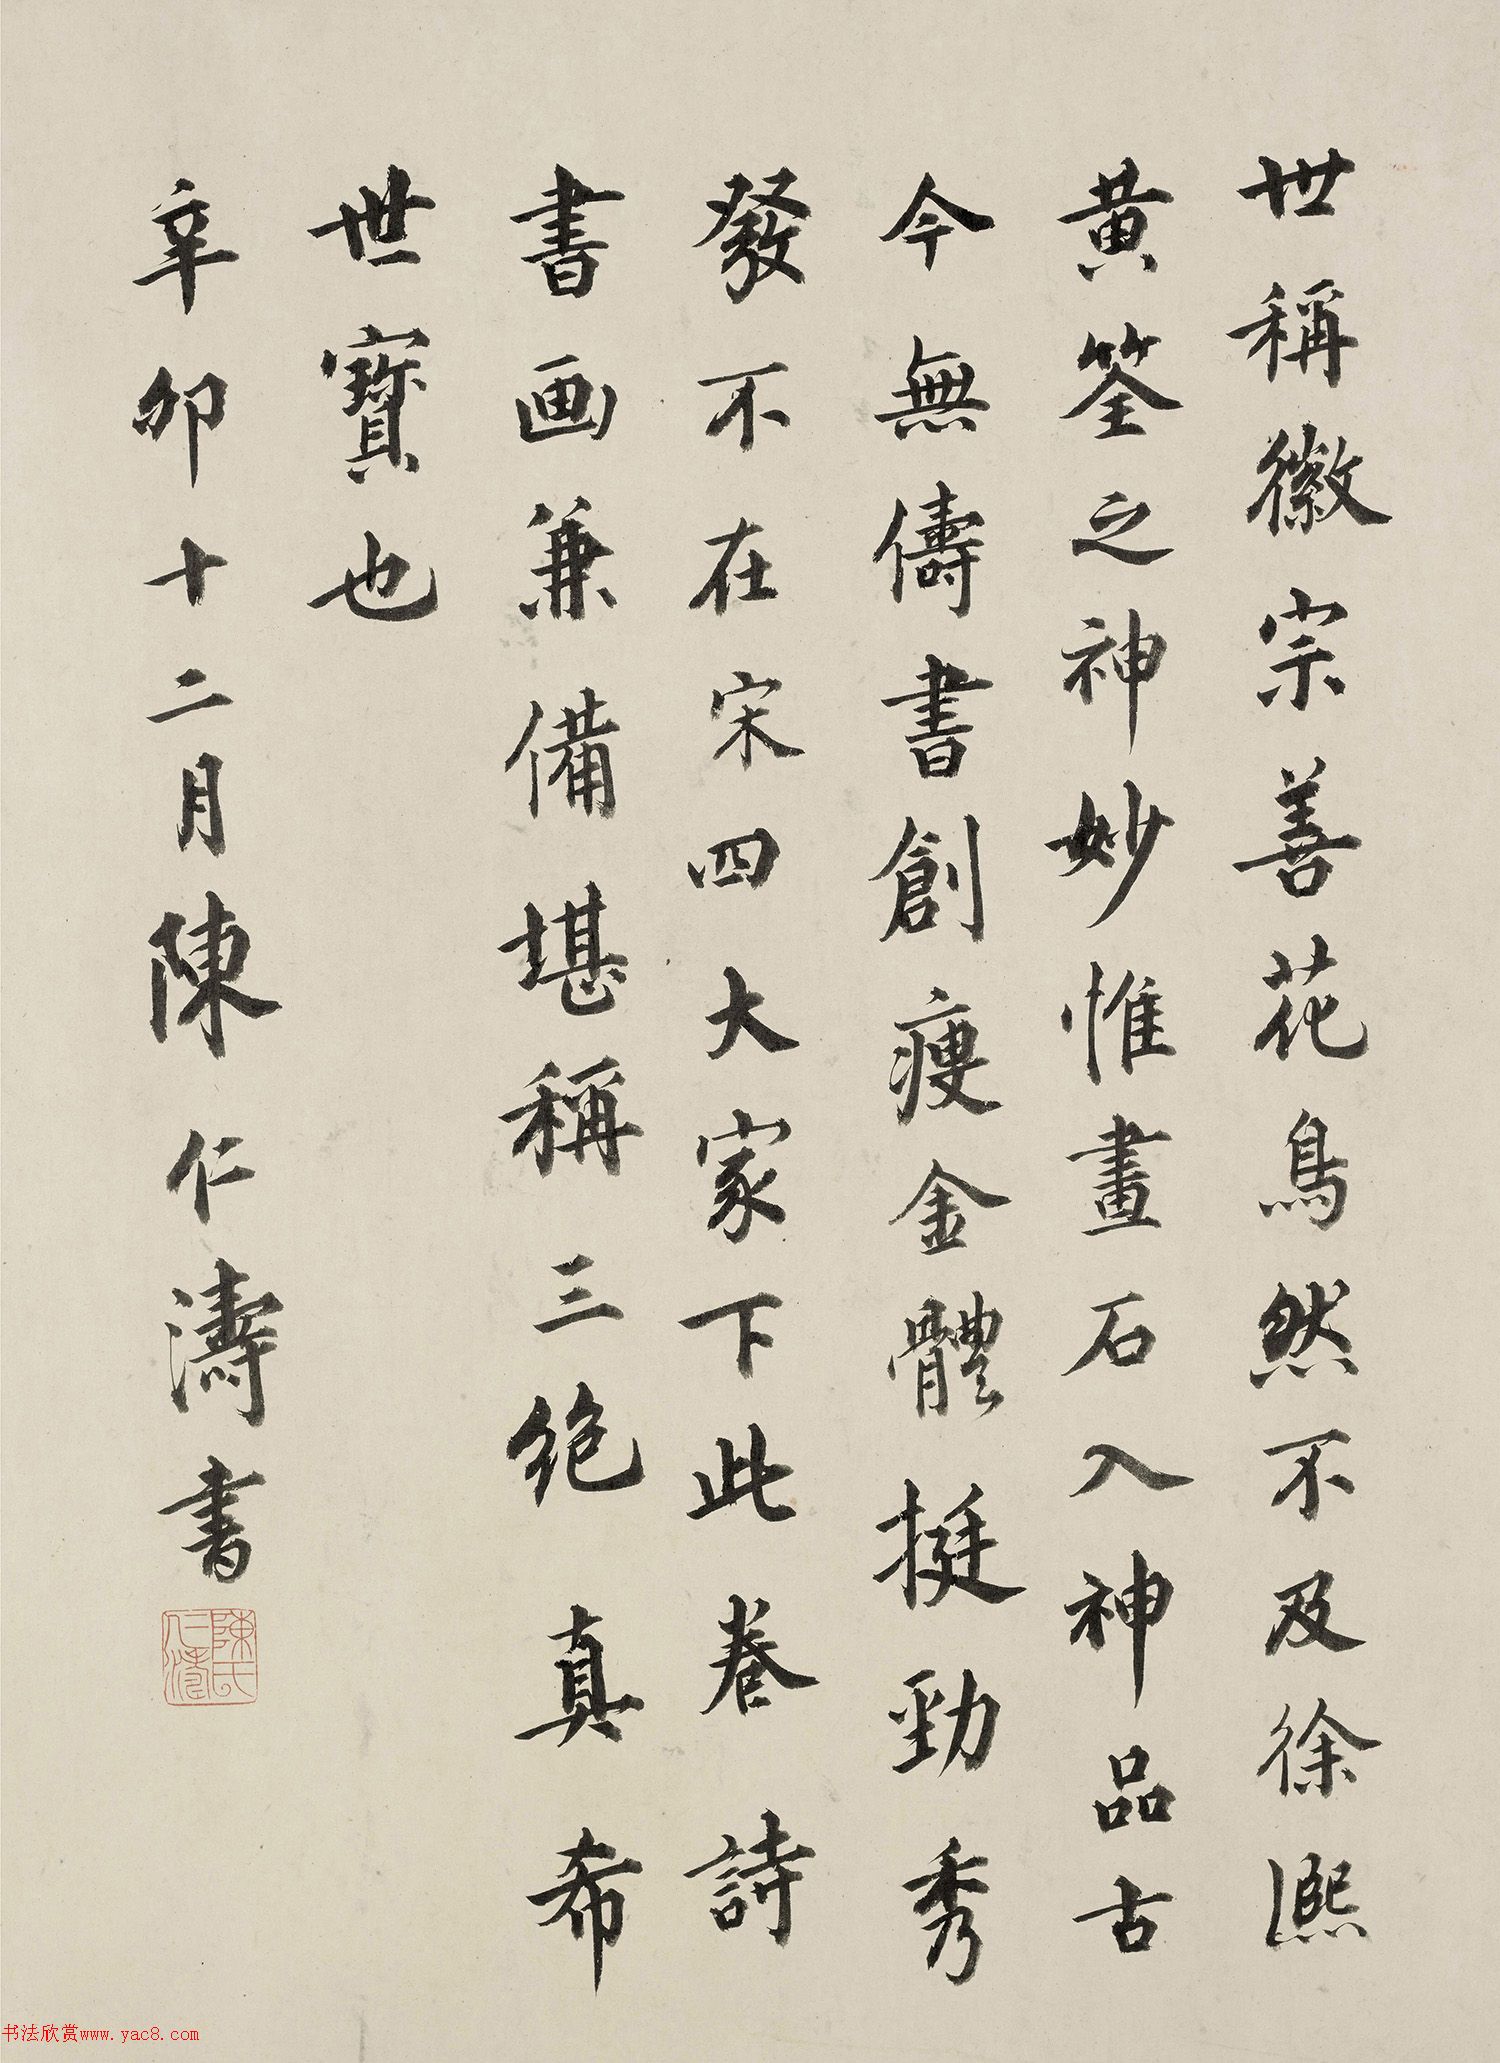 世稱徽宗善花鳥然不及徐熙
黃筌之神妙惟畫石入神品古
今無儔書創瘦金體挺勁秀
發不在宋四大家下此卷詩
書画兼備堪稱三絶真希
世寶也
辛卯十二月陳仁濤書
陳氏仁濤
书法欣赏www.yac8.com